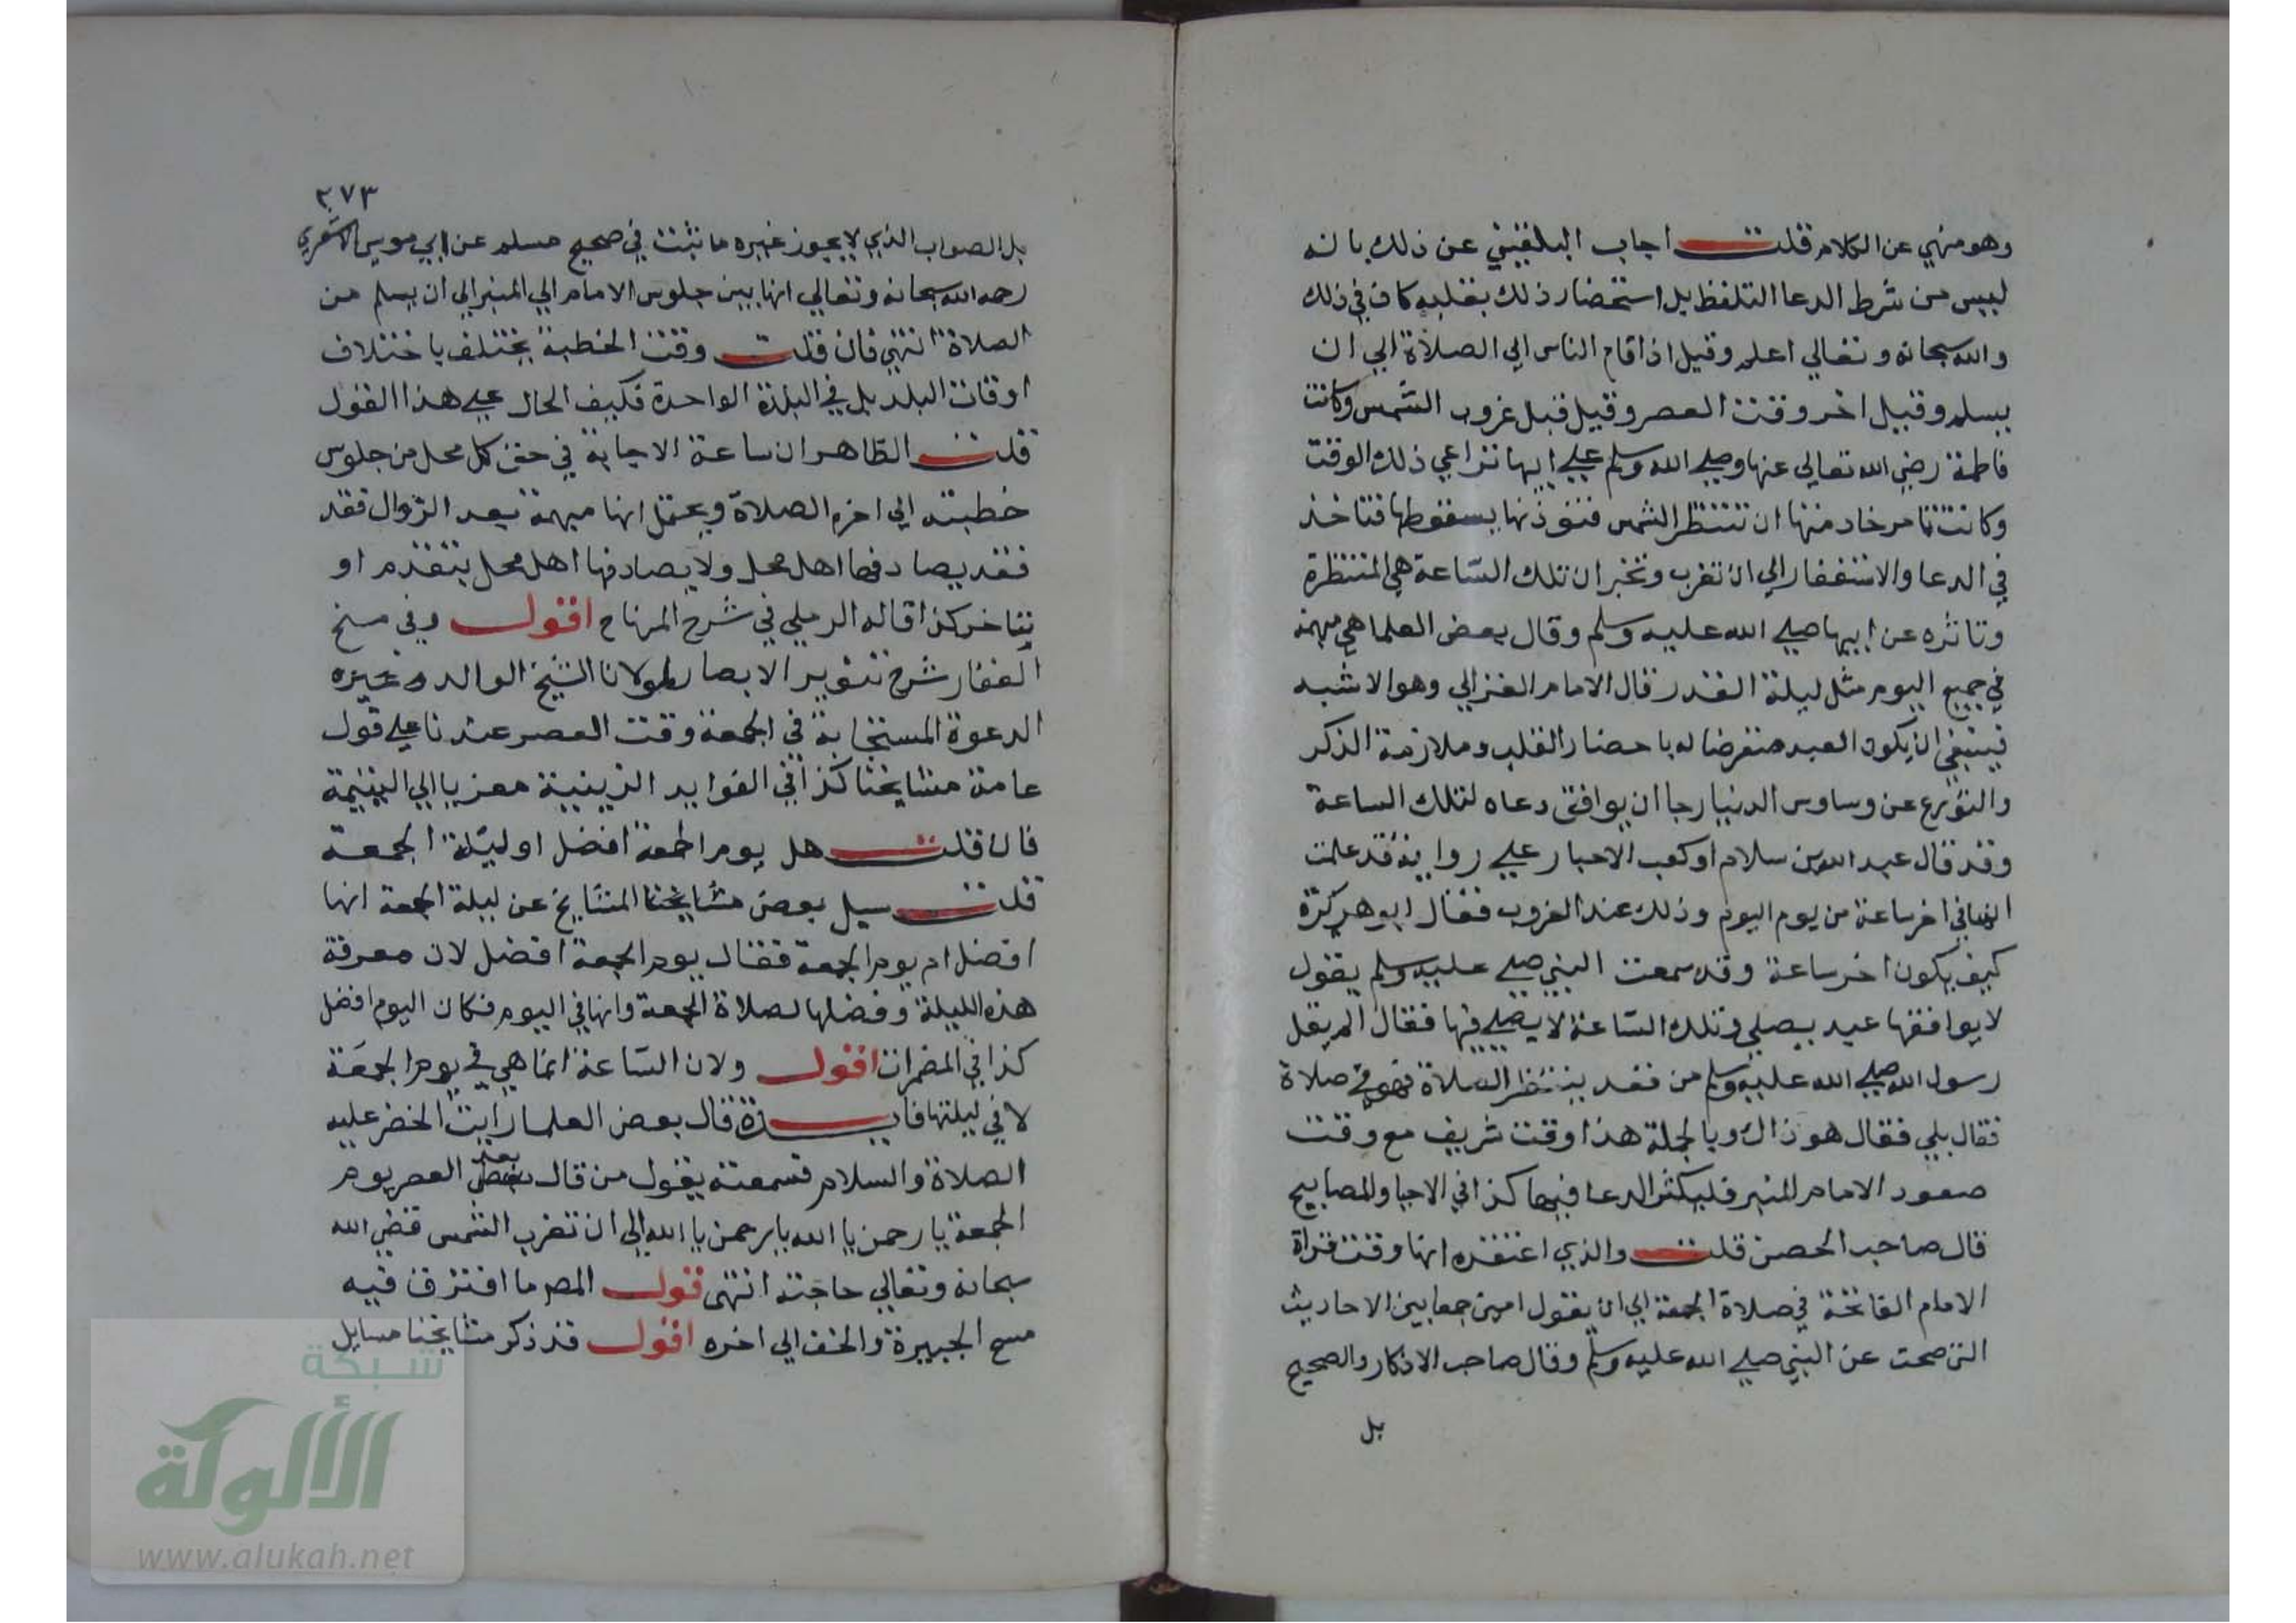 وهو منهي عن الكلام قلت اجاب البلقيني عن ذلك بانه
ليس من شرط الدعا التلفظ بل استحضار ذلك بقلبه كاف في ذلك
والله سبحانه وتعالي اعلم وقيل اذا قام الناس الي الصلاة الي ان
يسلم وقيل اخر وقت العصر وقيل قبل غروب الشمس وكانت
فاطمة رضي الله تعالي عنها وصلي الله وسلم علي ابيها تراعي ذلك الوقت
وكانت تامر خادمتها ان تنتظر الشمس فتوذنها بسقوطها فتاخذ
في الدعا والاستغفار الي ان تغرب وتخبر ان تلك الساعة هي المنتظرة
وتاثره عن ابيها صلي الله عليه وسلم وقال بعض العلما هي مبهمة
في جميع اليوم مثل ليلة القدر قال الامام الغزالي وهو الاشبه
فينبغي ان يكون العبد متعرضا له باحضار القلب وملازمة الذكر
والتورع عن وساوس الدنيا رجا ان يوافق دعاه لتلك الساعة
وقد قال عبد الله بن سلام او كعب الاحبار علي رواية قد علمت
انها في اخر ساعة من يوم اليوم وذلك عند الغروب فقال ابو هريرة
كيف يكون اخر ساعة وقد سمعت النبي صلي عليه وسلم يقول
لا يوافقها عبد يصلي وتلك الساعة لا يصلي فيها فقال الم يقل
رسول الله صلي الله عليه وسلم من قعد ينتظر الصلاة فهو في صلاة
فقال بلي فقال هو ذاك وبالجملة هذا وقت شريف مع وقت
صعود الامام المنبر فليكثر الدعا فيهما كذا في الاحيا والمصابيح
قال صاحب الحصن قلت والذي اعتقده انها وقت قراة
الامام الفاتحة في صلاة الجمعة الي ان يقول امين جمعا بين الاحاديث
التي صحت عن النبي صلي الله عليه وسلم وقال صاحب الاذكار والصحيح
بل
٢٧٣
بل الصواب الذي لا يجوز غيره ما ثبت في صحيح مسلم عن ابي موسي الاشعري
رحمه الله سبحانه وتعالي انها بين جلوس الامام الي المنبر الي ان يسلم من
الصلاة انتهي فان قلت وقت الخطبة يختلف باختلاف
اوقات البلد بل في البلدة الواحدة فكيف الحال علي هذا القول
قلت الظاهر ان ساعة الاجابة في حق كل محل من جلوس
خطبته الي اخره الصلاة ويحتمل انها مبهمة بعد الزوال فقد
فقد يصادفها اهل محل ولا يصادفها اهل محل بتقدم او
بتاخر كذا قاله الرملي في شرح المنهاج اقول وفي منح
الغفار شرح تنوير الابصار لمولانا الشيخ الوالد وغيره
الدعوة المستجابة في الجمعة وقت العصر عندنا علي قول
عامة مشايخنا كذا في الفوايد الزينية معزيا الي اليتيمة
فان قلت هل يوم الجمعة افضل او ليلة الجمعة
قلت سيل بعض مشايخنا المشايخ عن ليلة الجمعة انها
افضل ام يوم الجمعة فقال يوم الجمعة افضل لان معرفة
هذه الليلة وفضلها لصلاة الجمعة وانها في اليوم فكان اليوم افضل
كذا في المضمرات اقول ولان الساعة انما هي في يوم الجمعة
لا في ليلتها فايدة قال بعض العلما رايت الخضر عليه
الصلاة والسلام فسمعته يقول من قال بعد العصر يوم
الجمعة يا رحمن يا الله يا رحمن يا الله الي ان تغرب الشمس قضي الله
سبحانه وتعالي حاجته انتهي قوله المص ما افترق فيه
مسح الجبيرة والخف الي اخره اقول قد ذكر مشايخنا مسايل
شبكة
الألوكة
www.alukah.net